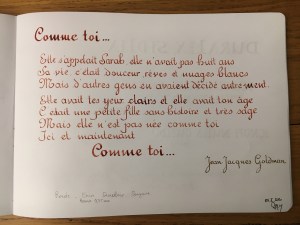 Comme toi...
Elle s'appelait Sarah, elle n'avait pas huit ans
Sa vie, c'était douceur, rêves et nuages blancs
Mais d'autres gens en avaient décidé autrement.
Elle avait tes yeux clairs et elle avait ton âge
C'était une petite fille sans histoire et très sage
Mais elle n'est pas née comme toi
Ici et maintenant
Comme toi...
Jean Jacques Goldman